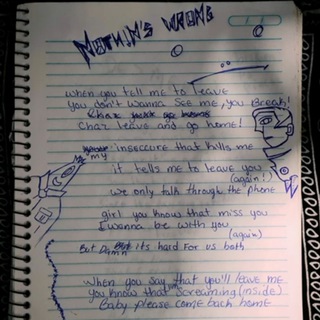 Nothin's wrong
when you tell me to leave
you don't wanna see me, you Break!
Chaz leave and go home!
my insecure that kills me
it tells me to leave you
(again!)
we only talk through the phone
girl you know that miss you
I wanna be with you
(again)
But Damn its hard for us both
when you say that you'll leave me
you know that screaming (inside)
baby please come back home